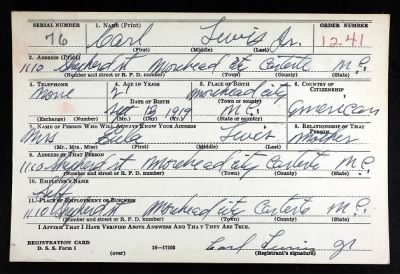 SERIAL NUMBER 1. NAME (Print) ORDER NUMBER
76 Carl Lewis Jr. 1241
(First) (Middle) (Last)
2. ADDRESS (Print)
1110 Shepherd st Morehead city Carterte N.C.
(Number and street or R. F. D. number) (Town) (County) (State)
3. TELEPHONE 4. AGE IN YEARS 5. PLACE OF BIRTH 6. COUNTRY OF CITIZENSHIP
None 21 Morehead city
DATE OF BIRTH (Town or county)
Sept 13 1919 N.C. American
(Exchange) (Number) (Mo.) (Day) (Yr.) (State or country)
7. NAME OF PERSON WHO WILL ALWAYS KNOW YOUR ADDRESS 8. RELATIONSHIP OF THAT PERSON
Mrs Lewis Mother
(Mr., Mrs., Miss) (First) (Middle) (Last)
9. ADDRESS OF THAT PERSON
1110 Shepherd st Morehead city Carterte N.C.
(Number and street or R. F. D. number) (Town) (County) (State)
10. EMPLOYER'S NAME
Self
11. PLACE OF EMPLOYMENT OR BUSINESS
1110 Shepherd st Morehead city Carterte N.C.
(Number and street or R. F. D. number) (Town) (County) (State)
I AFFIRM THAT I HAVE VERIFIED ABOVE ANSWERS AND THAT THEY ARE TRUE.
REGISTRATION CARD
D. S. S. Form 1 16—17105 Carl Lewis Jr
(over) (Registrant's signature)